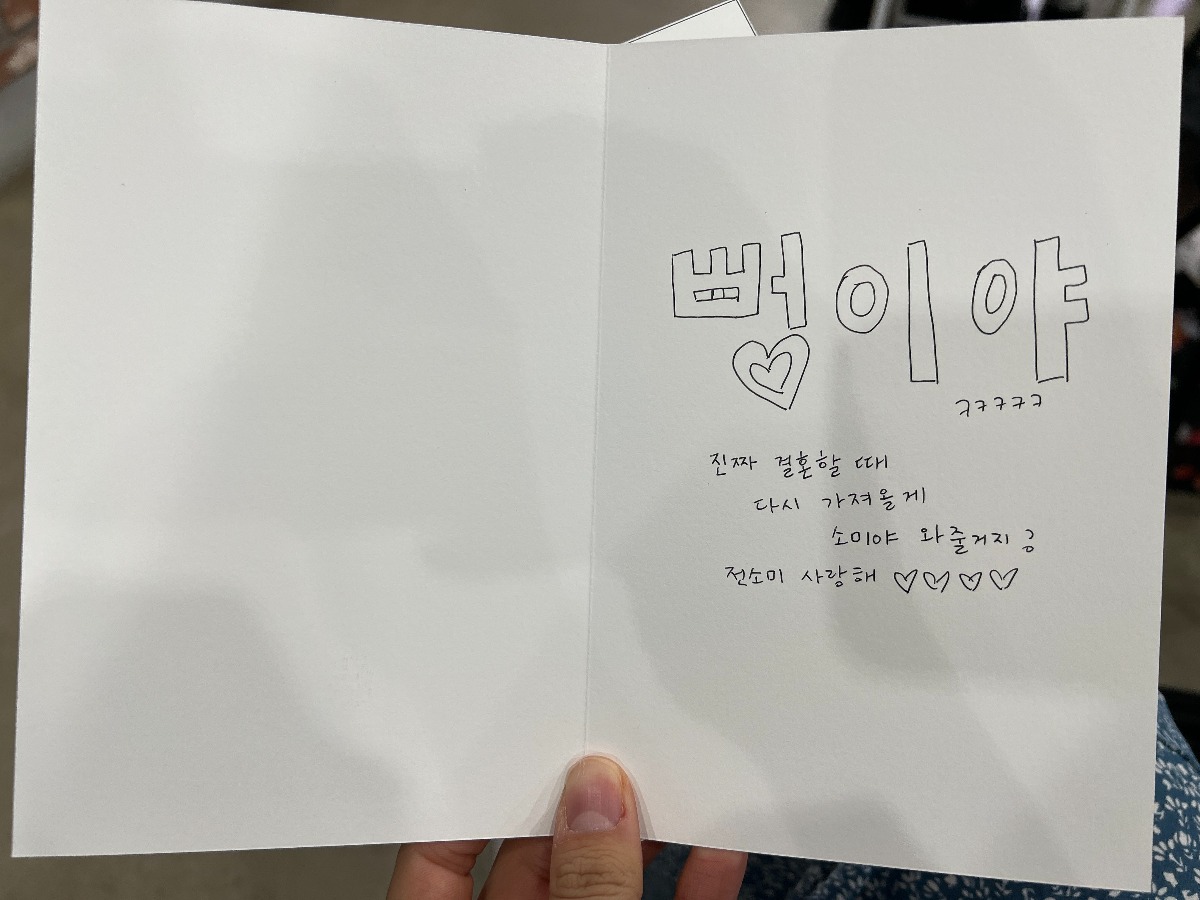 뻥이야
ㅋㅋㅋㅋㅋ
진짜 결혼할 때
다시 가져올게
소미야 와줄거지?
전소미 사랑해 ♡♡♡♡